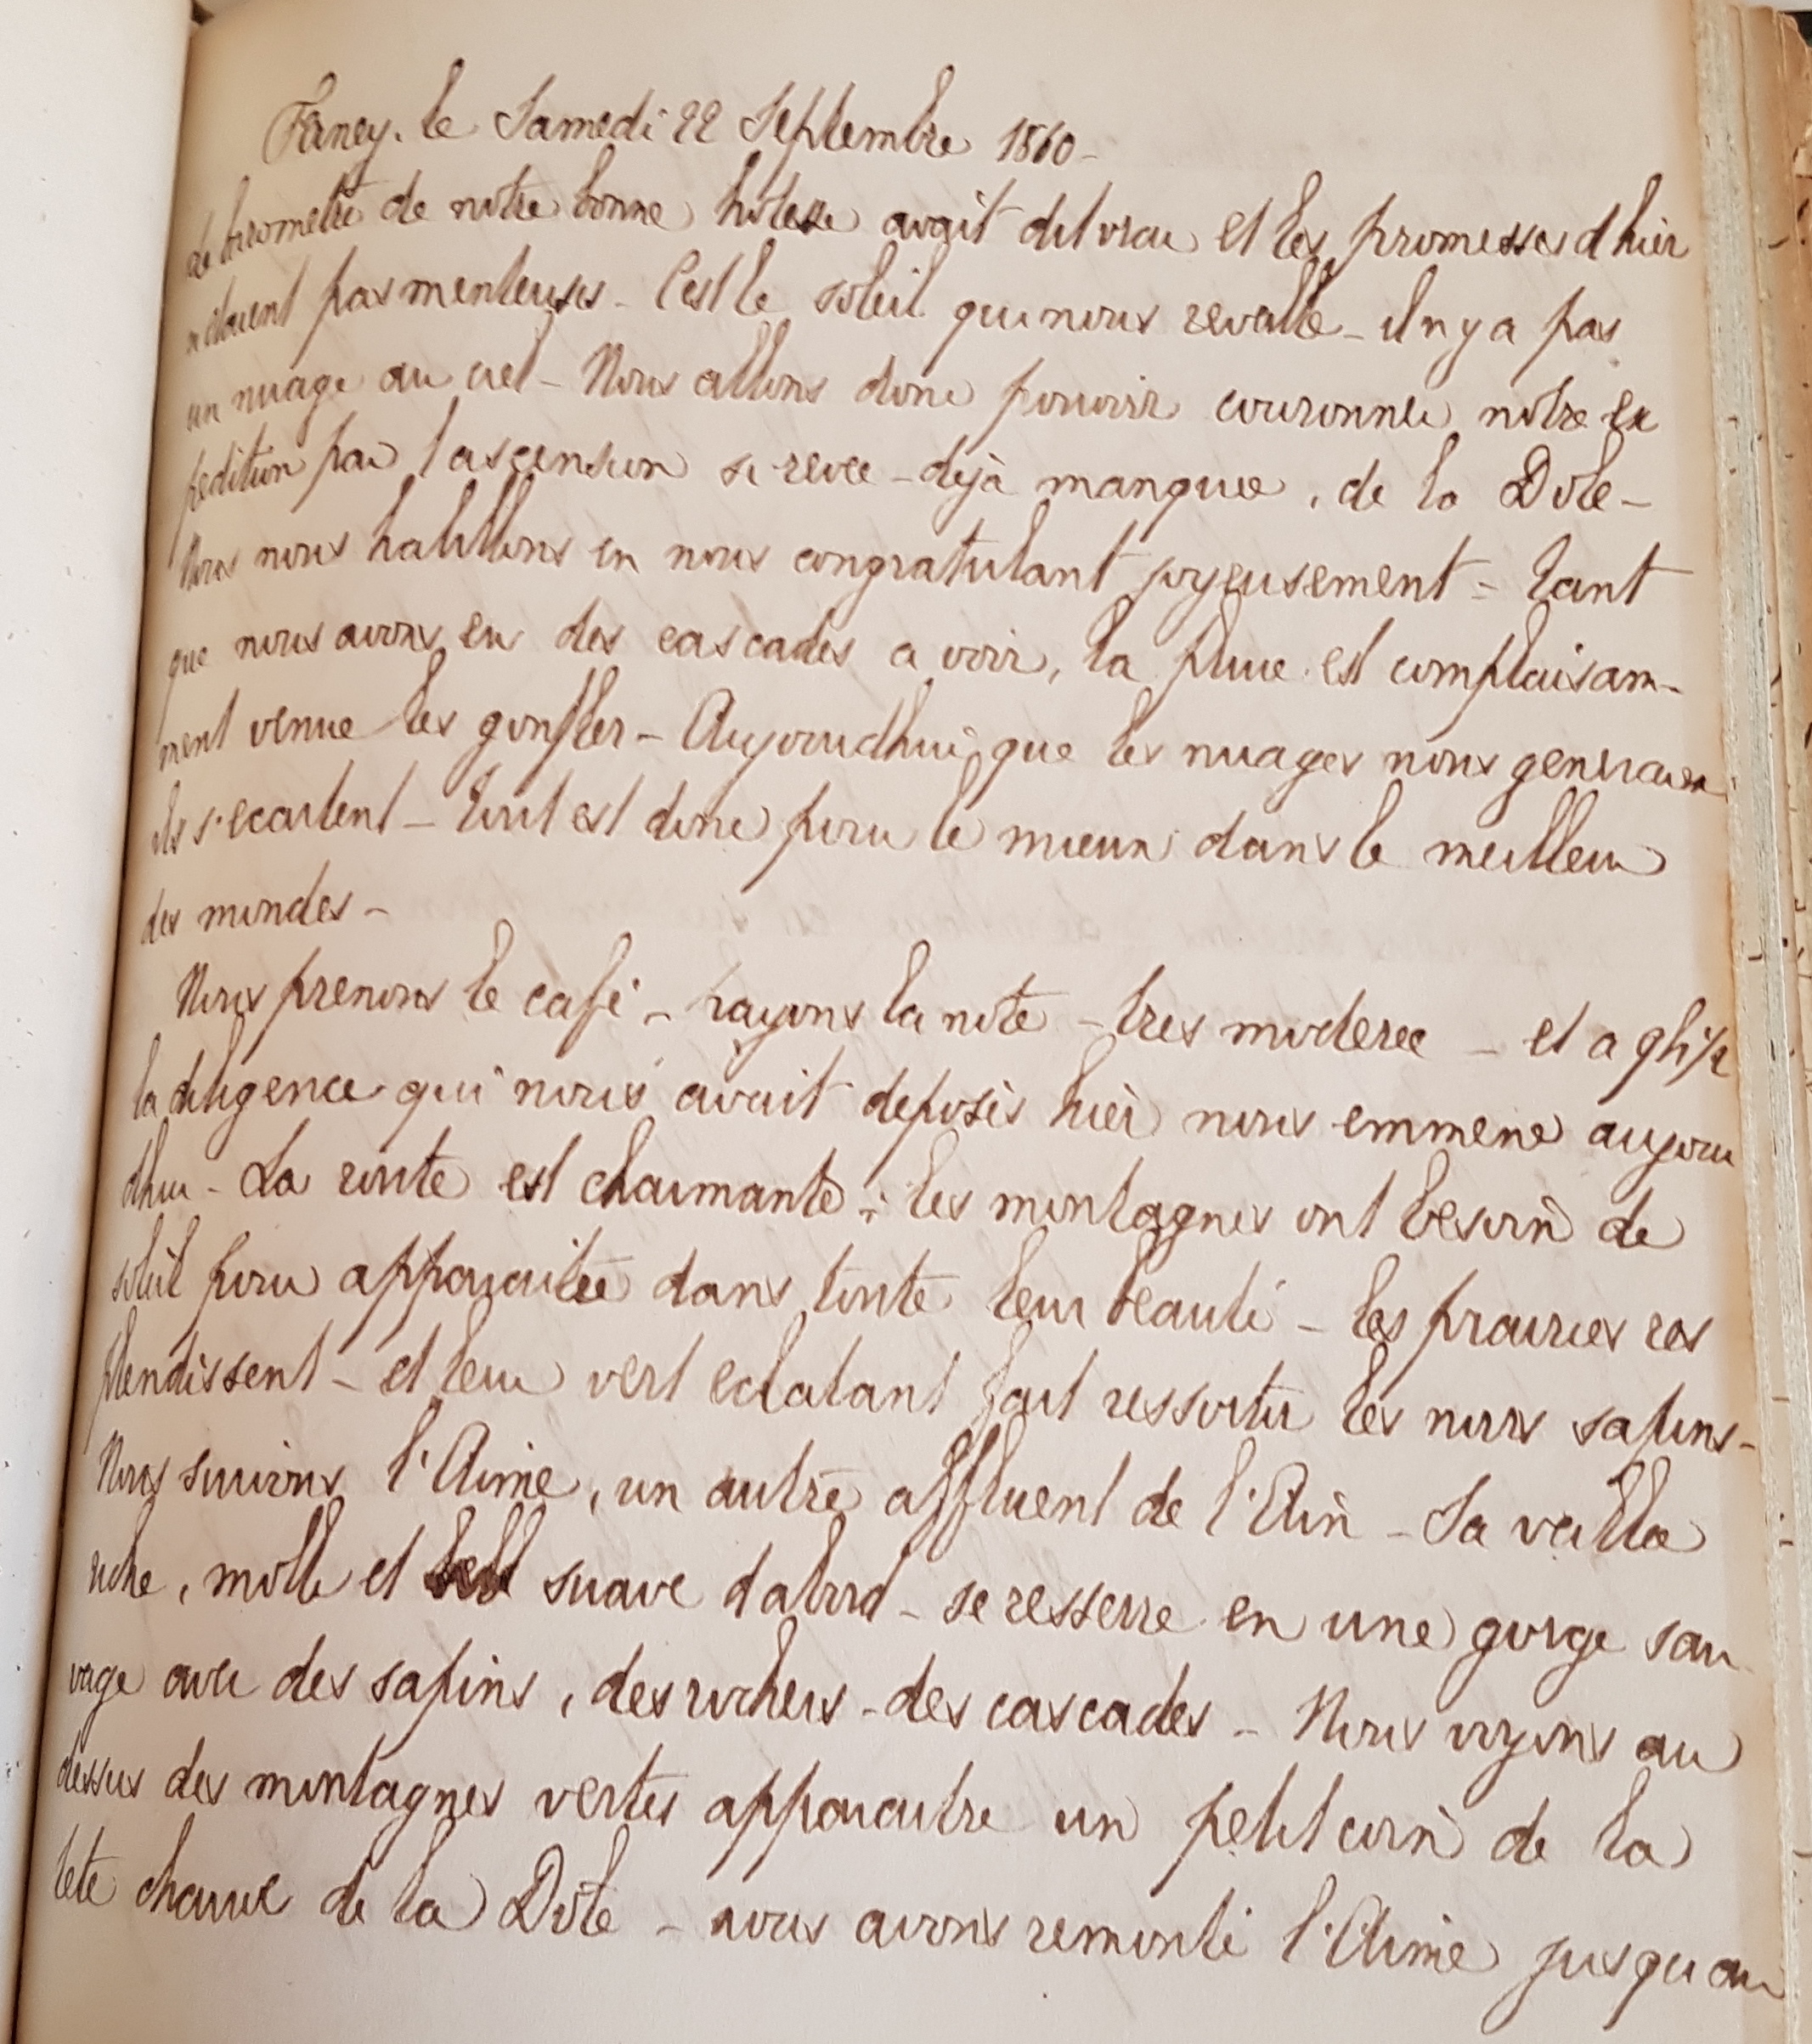 Ferney. le Samedi 22 Septembre 1860-
Le barometre de notre bonne hotesse avait dit vrai et les promesses d hier
n etaient pas menteuses - C'est le soleil qui nous reveille - il n y a pas
un nuage au ciel - Nous allons donc pouvoir couronner notre ex
pedition par l ascension si revee - dejà manquee, de la Dole -
Nous nous habillons en nous congratulant joyeusement - Tant
que nous avons eu des cascades a voir, la pluie est complaisam-
ment venue les gonfler - Aujourdhui que les nuages nous generaien
ils s'ecartent - Tout est donc pour le mieux dans le meilleur
des mondes -
Nous prenons le café - payons la note - tres moderee - et a 9h 1/2
la diligence qui nous avait deposés hier nous emmene aujour
dhui - La route est charmante ; les montagnes ont besoin de
soleil pour apparaitre dans toute leur beauté - les prairies res
plendissent - et leur vert eclatant fait ressortir les noirs sapins -
Nous suivons l'Aime, un autre affluent de l'Ain - Sa vallee
riche, molle et suave d abord - se resserre en une gorge sau
vage avec des sapins, des rochers - des cascades - Nous voyons au
dessus des montagnes vertes apparaitre un petit coin de la
tete chauve de la Dôle - nous avons remonté l'Aime jusqu au